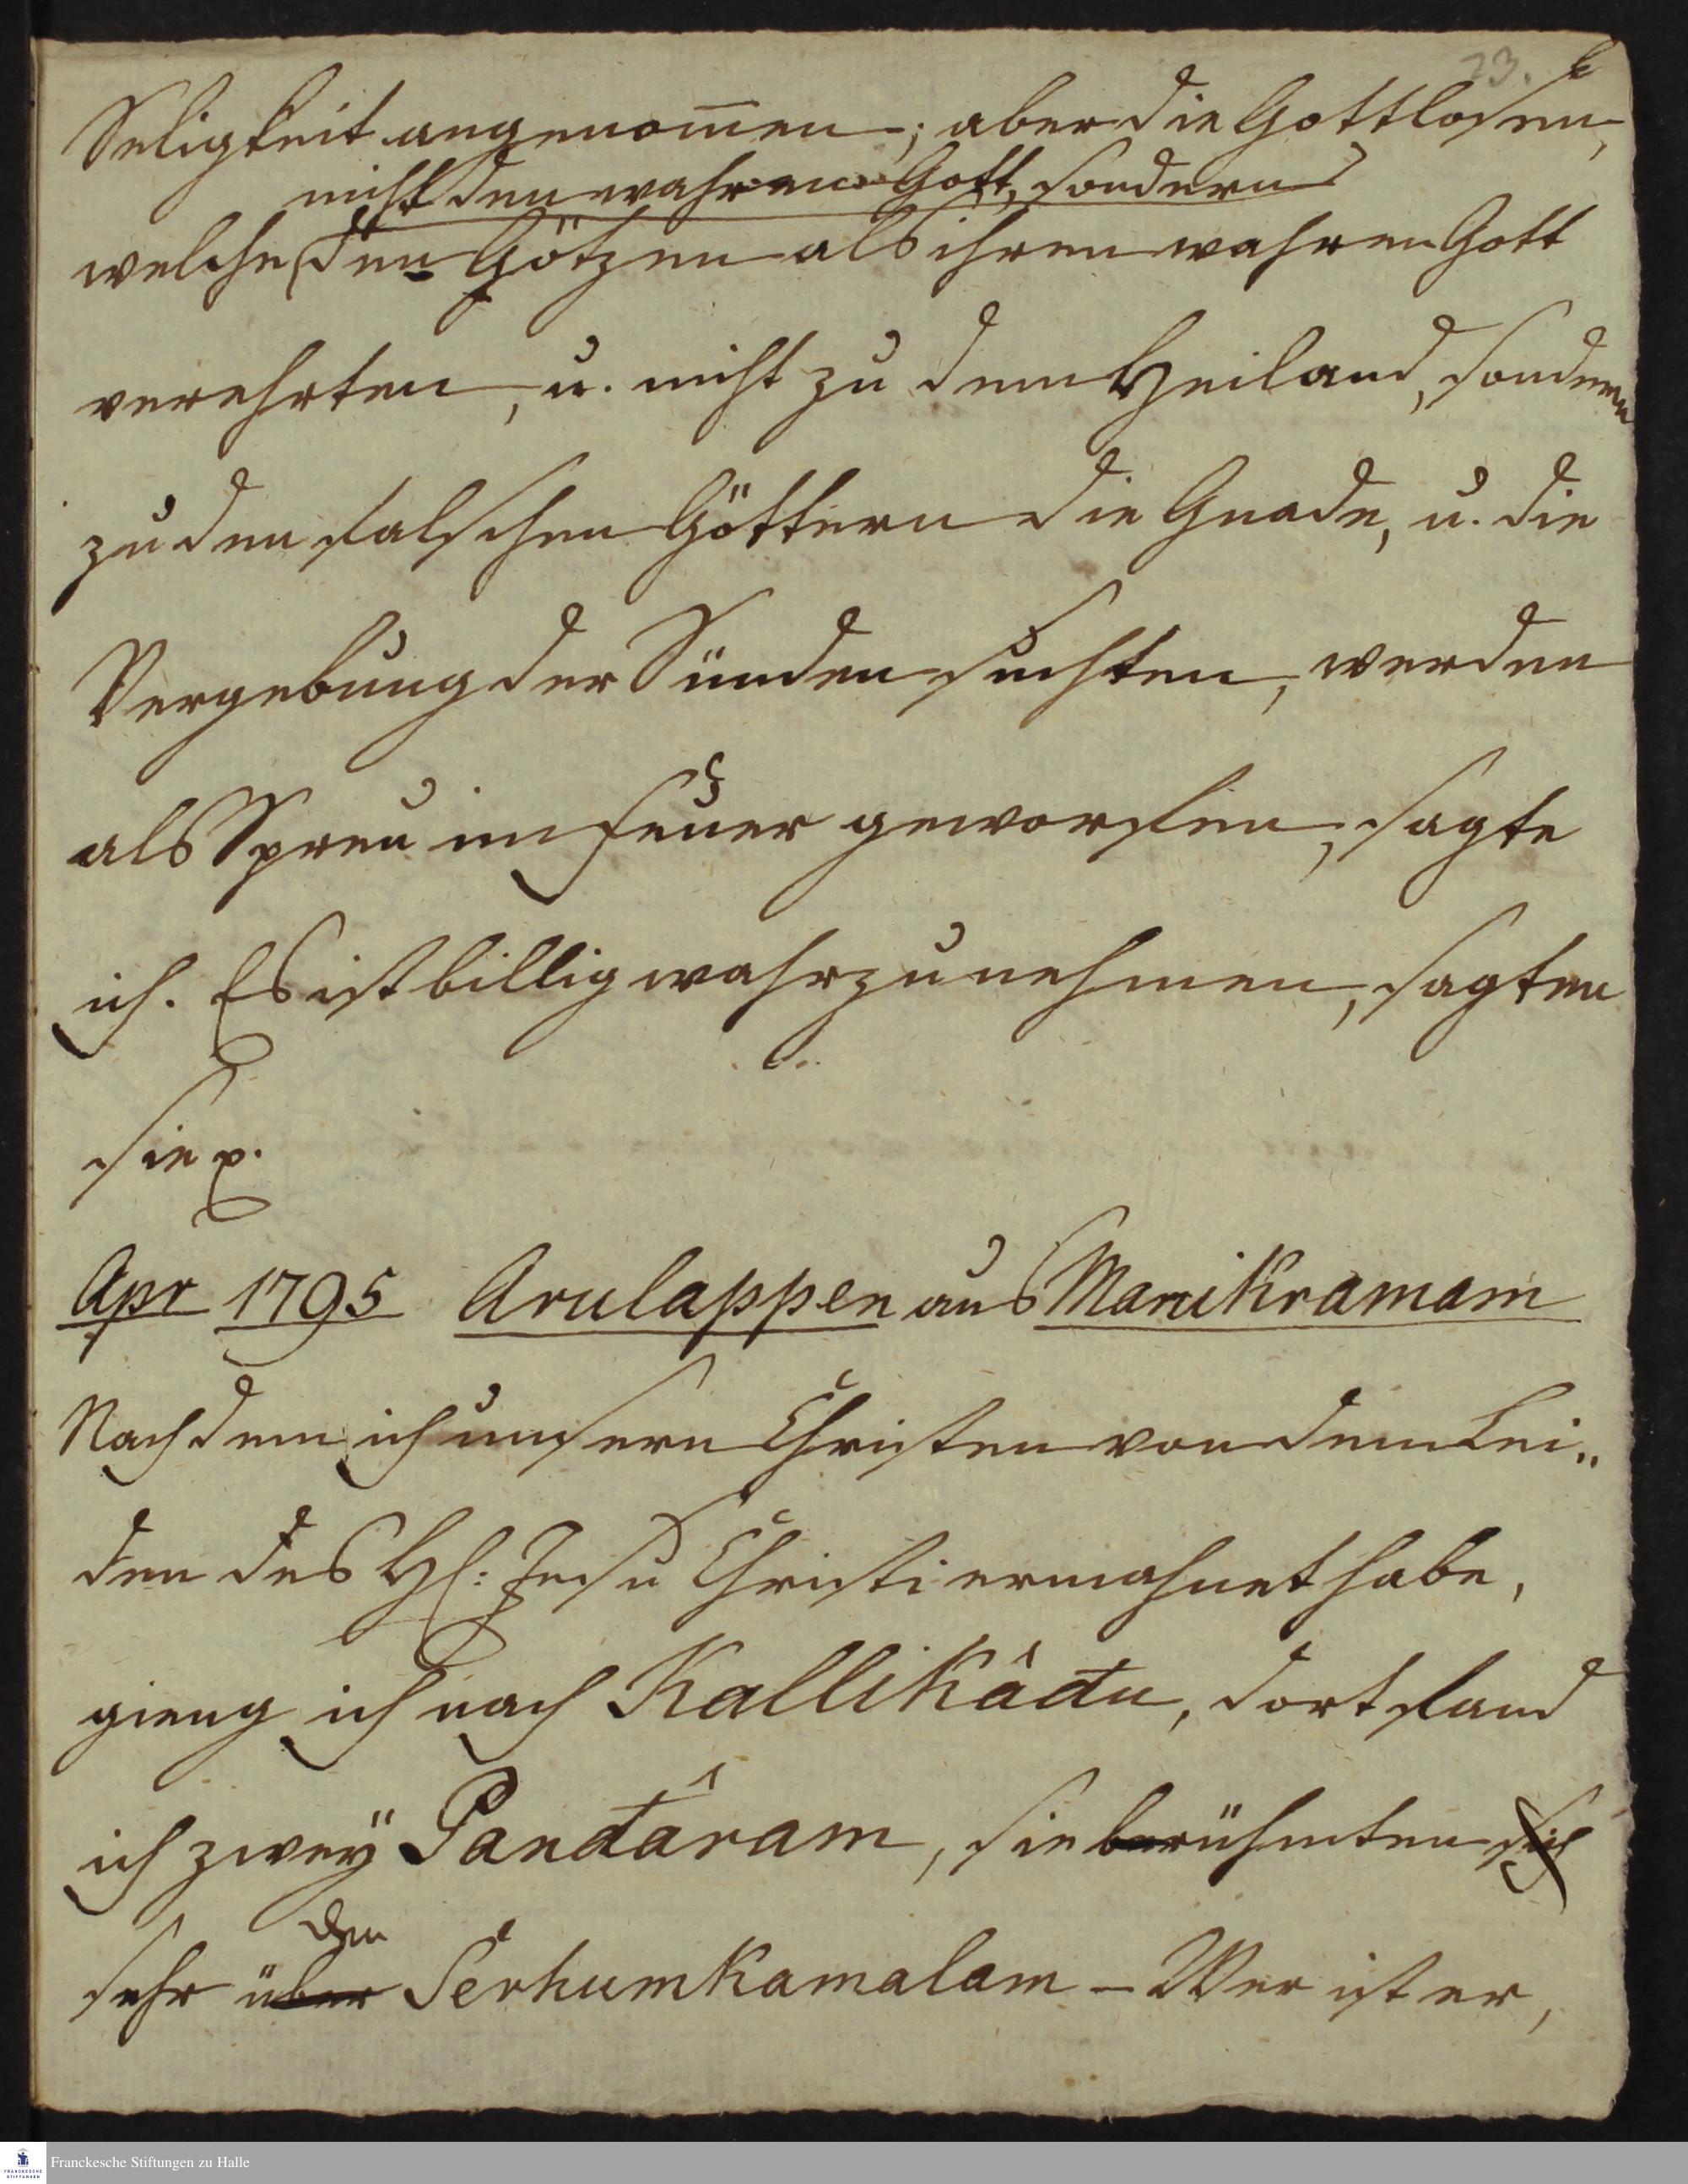 23.
Seligkeit angenom̅en; aber die Gottlosen,
nicht den wahren Gott, sondern
welche den Götzen als ihren wahren Gott
verehrten, u. nicht zu dem Heiland, sondern
zu den falschen Göttern die Gnade, u. die
Vergebung der Sünden suchten, werden
als Spreu im Feuer geworfen, sagte
ich. Es ist billig wahrzunehmen, sagten
sie p.
Apr 1795 Arulappen aus Manikramam
Nachdem ich unsern Christen von dem Lei„
den des H: Jesu Christi ermahnet habe,
gieng ich nach Kallikâdu, dort fand
ich zweÿ Pandâram, sie berühmten sich
den
sehr über Serkumkamalam – Wer ist er,
Franckesche Stiftungen zu Halle